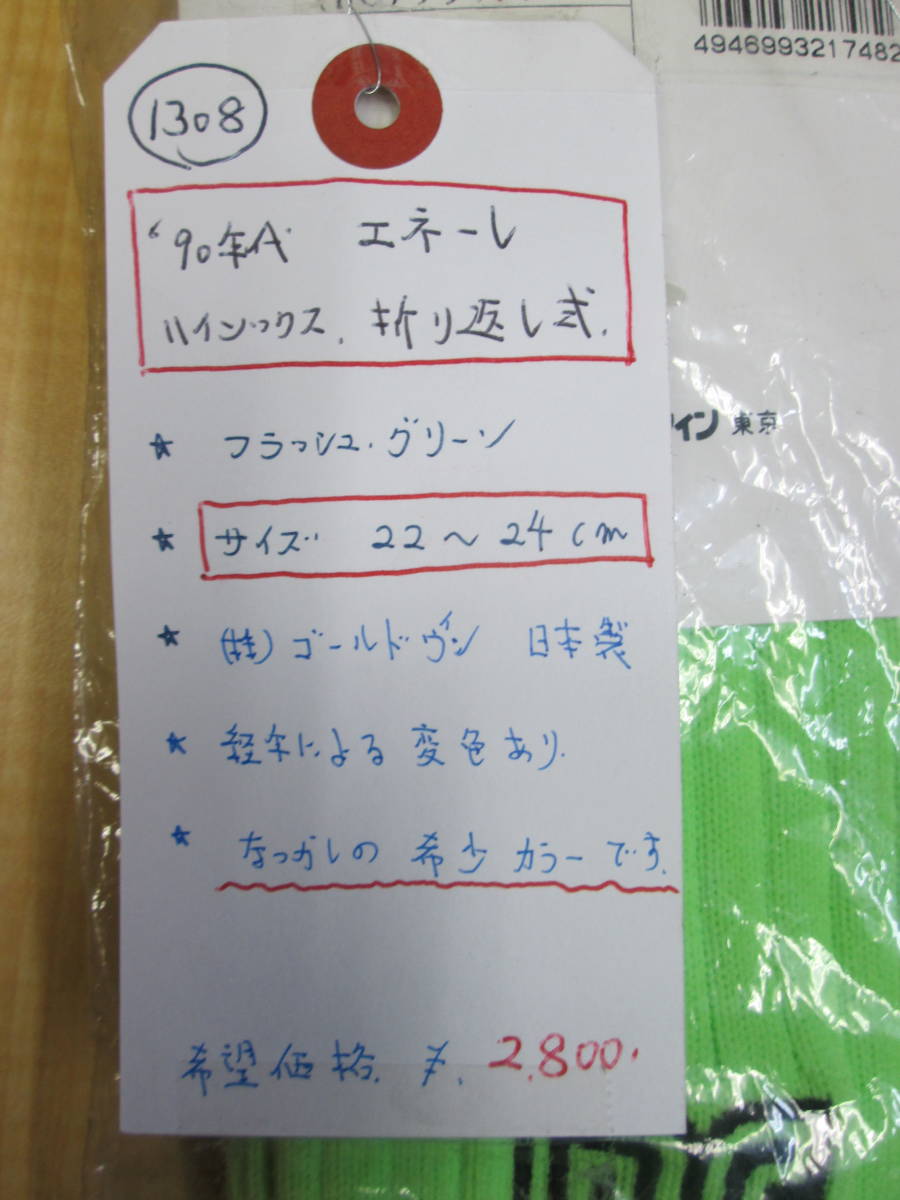 4946993217482
1308
'90年代 エネーレ
ハインックス. 折り返し式.
★ フラッシュ・グリーン
★ サイズ 22～24cm
★ (株)ゴールドウィン 日本製
★ 経年による変色あり.
★ なつかしの希少カラーです.
希望価格. ¥. 2,800.
ィン 東京